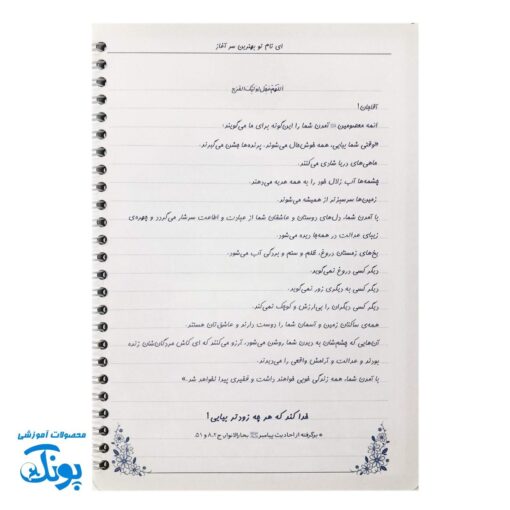 ای نام تو بهترین سر آغاز
اللّهمّ عجّل لولیّک الفرج
آقاجان!
ائمه معصومین آمدن شما را این‌گونه برای ما می‌گویند:
«وقتی شما بیایی، همه خوش‌حال می‌شوند. پرنده‌ها جشن می‌گیرند.
ماهی‌های دریا شادی می‌کنند.
چشمه‌ها آب زلال خود را به همه هدیه می‌دهند.
زمین‌ها سرسبزتر از همیشه می‌شوند.
با آمدن شما، دل‌های دوستان و عاشقان شما از عبادت و اطاعت سرشار می‌گردد و چهره‌ی
زیبای عدالت در همه‌جا دیده می‌شود.
یخ‌های زمستان دروغ، ظلم و ستم و بردگی آب می‌شود.
دیگر کسی دروغ نمی‌گوید.
دیگر کسی به دیگری زور نمی‌گوید.
دیگر کسی دیگران را بی‌ارزش و کوچک نمی‌کند.
همه‌ی ساکنان زمین و آسمان شما را دوست دارند و عاشق‌تان هستند.
آن‌هایی که چشم‌شان به دیدن شما روشن می‌شود، آرزو می‌کنند که ای کاش مردگان‌شان زنده
بودند و عدالت و آرامش واقعی را می‌دیدند.
با آمدن شما، همه زندگی خوبی خواهند داشت و فقیری پیدا نخواهد شد.»
خدا کند که هر چه زودتر بیایی!
* برگرفته از احادیث پیامبر بحارالانوار، ج ۸،۲ و ۵۱.
محصولات آموزشی
پونک